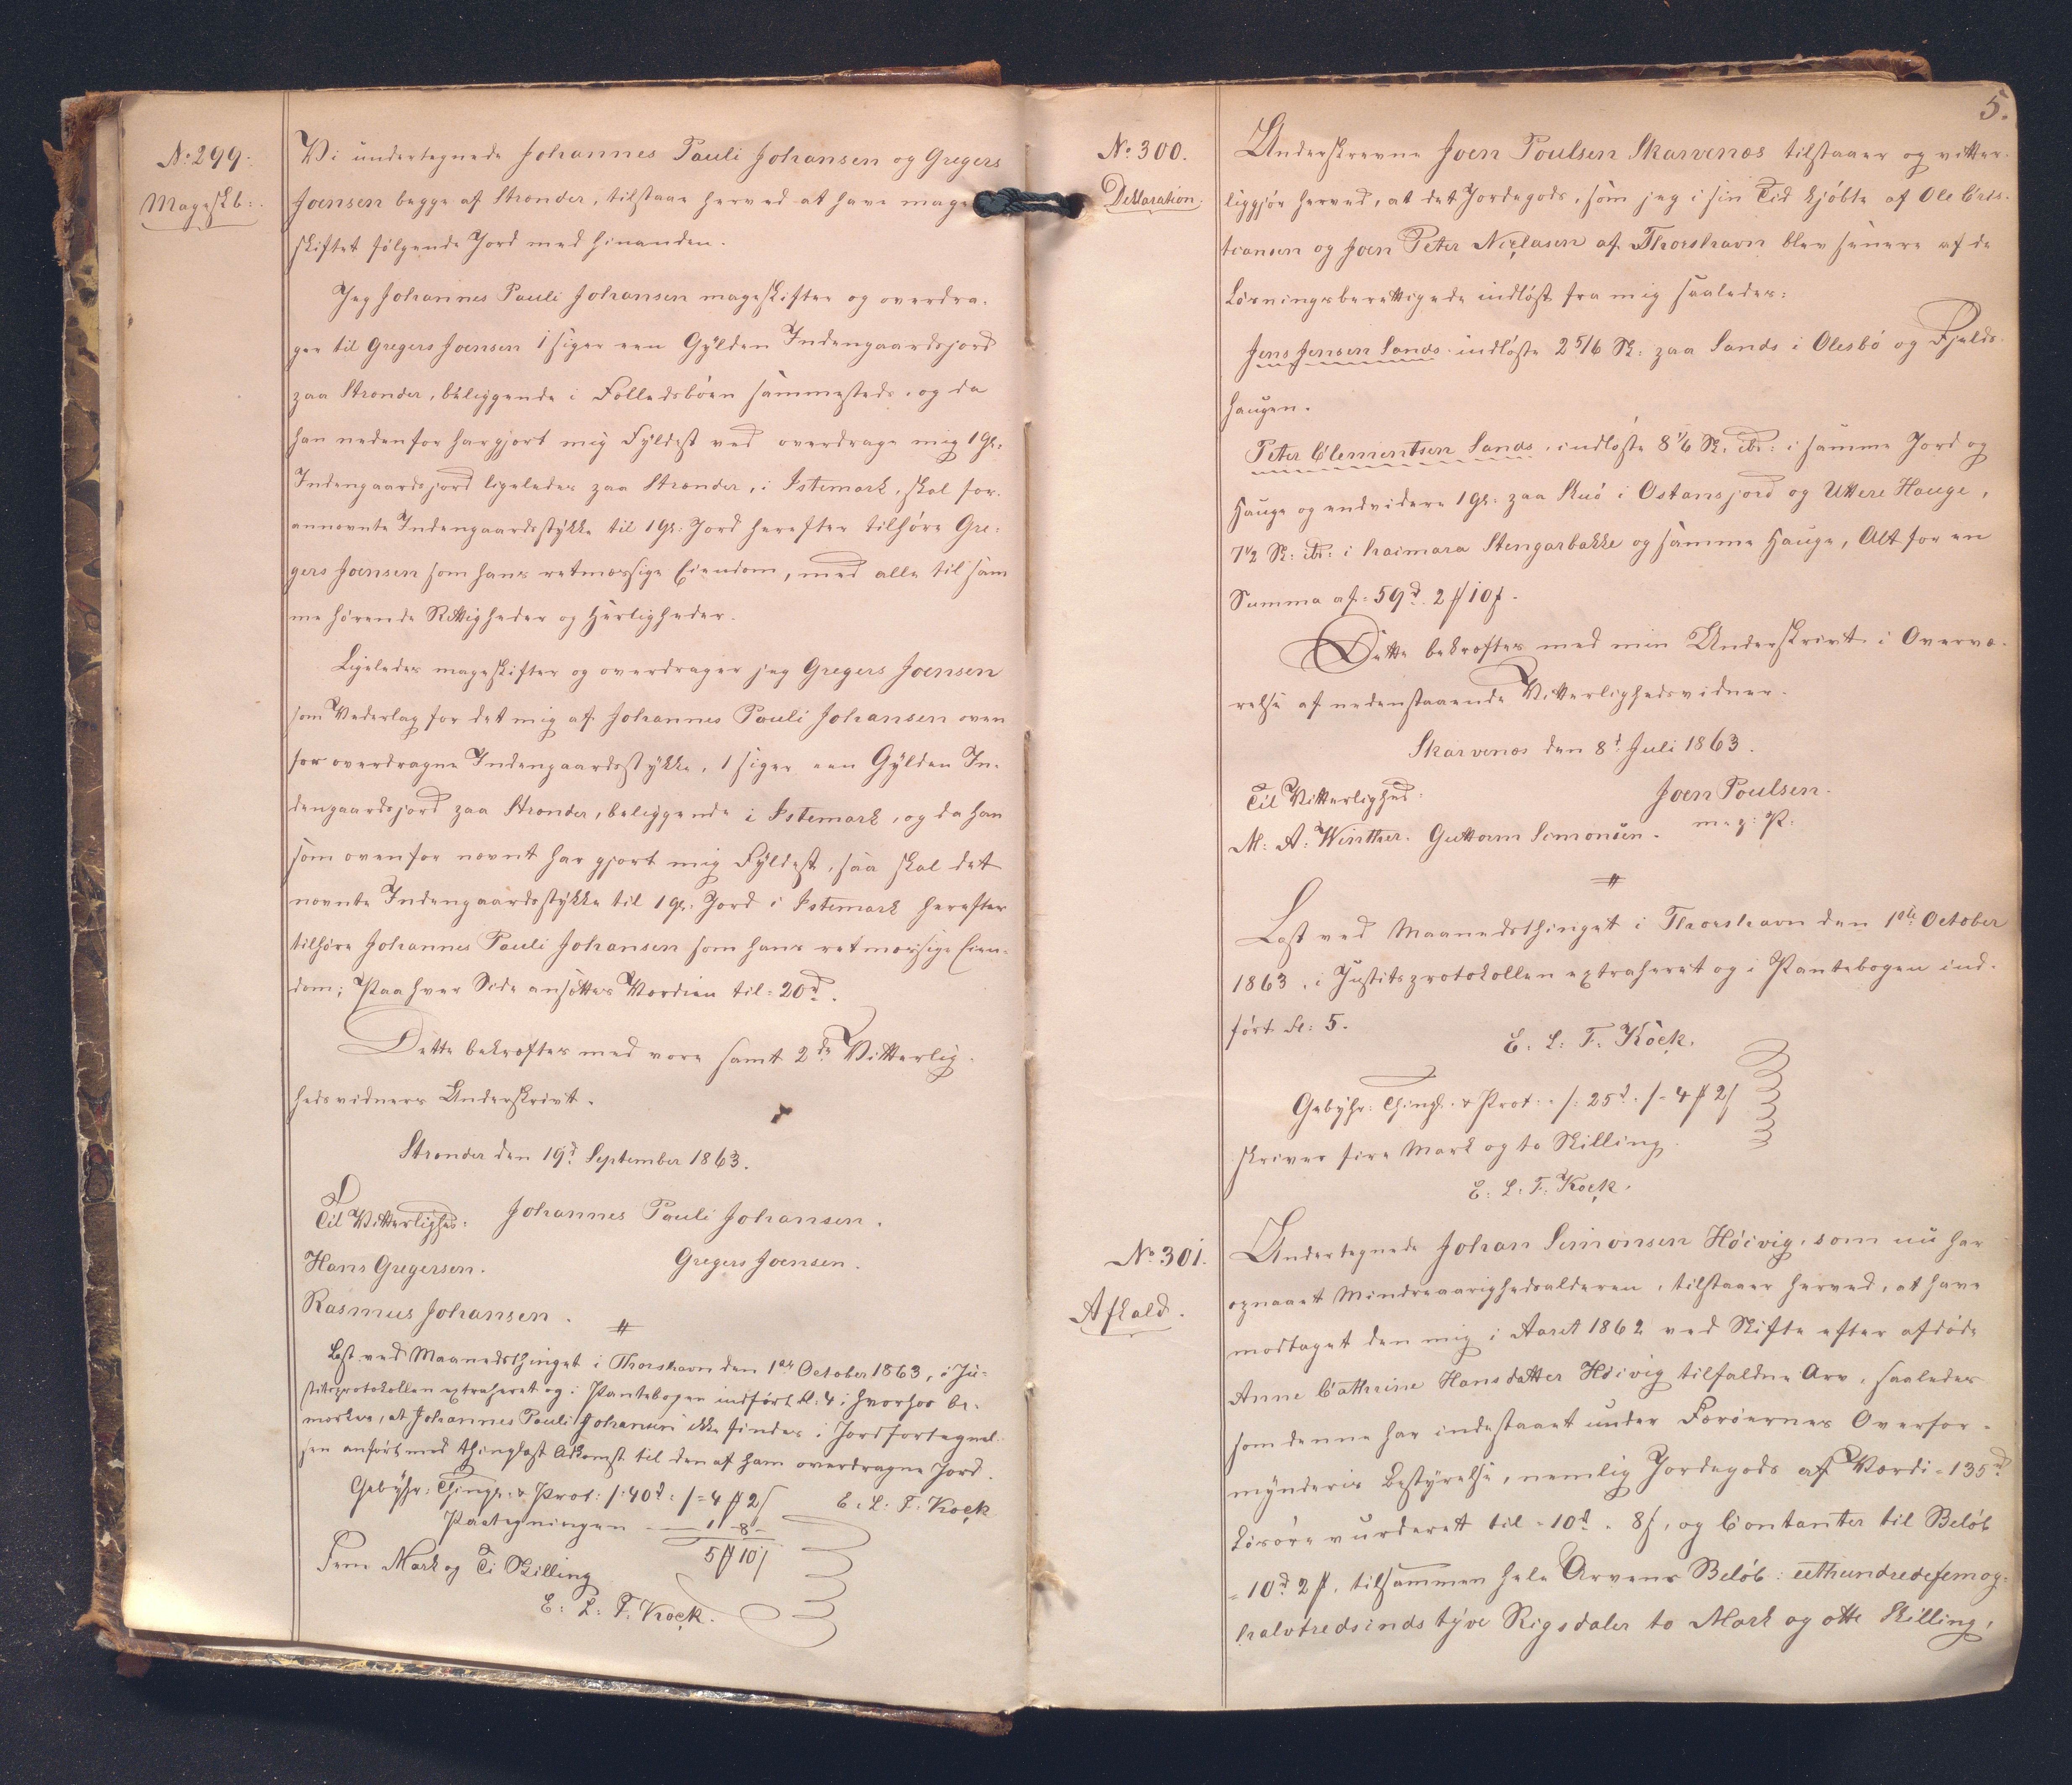 No 299.
Mageskb:
Vi undertegnede Johannes Pauli Johansen og Gregers
Joensen begge af Strønder, tilstaae herved at have mage
skiftet følgende Jord med hinanden.
Jeg Johannes Pauli Johansen mageskifter og overdra-
ger til Gregers Joensen 1 siger een Gylden Indengaardsjord
paa Strønder, beliggende i Følledsbøen sammesteds, og da
han nedenfor har gjort mig Fyldest ved overdrage mig 1 Gl:
Indengaardsjord ligeledes paa Strønder, i Istemark, skal for-
annævnte Indengaardsstykke til 1 Gl: Jord herefter tilhøre Gre-
gers Joensen som hans retmæssige Eiendom, med alle til sam
me hørende Rettigheder og Herligheder.
Ligeledes mageskifter og overdrager jeg Gregers Joensen
som Vederlag for det mig af Johannes Pauli Johansen oven
for overdragne Indengaardsstykke, 1 siger een Gylden In-
dengaardsjord paa Strønder, beliggende i Istemark, og da han
som ovenfor nævnt har gjort mig Fyldest, saa skal det
nævnte Indengaardsstykke til 1 Gl: Jord i Istemark herefter
tilhøre Johannes Pauli Johansen som hans retmæssige Eien-
dom; Paa hver Side ansættes Værdien til = 20 d.
Dette bekræftes med vore samt 2de Vitterlig-
hedsvidners Underskrivt.
Strønder den 19d September 1863.
Til Vitterlighed: Johannes Pauli Johansen.
Hans Gregersen. Gregers Joensen.
Rasmus Johansen.
#
Læst ved Maanedsthinget i Thorshavn den 1ste October 1863, i Ju-
stitsprotokollen extraheret og i Pantebogen indført fol: 4; hvorhos be-
mærkes, at Johannes Pauli Johansen ikke findes i Jordfortegnel-
sen anført med thinglæst Adkomst til den af ham overdragne Jord.
Gebyhr: Thingl. & Prot: /: 40 d: / = 4 ₻ 2 ß E: L: F: Kock
Paategningen — 1 - 8 -
5 ₻ 10 ß
Fem Mark og Ti Skilling
E: L: F: Kock.
5.
No 300.
Declaration.
Underskrevne Joen Poulsen Skarvenæs tilstaaer og vitter-
liggjør herved, at det Jordegods, som jeg i sin Tid kjøbte af Ole Cris-
tiansen og Joen Peter Niclasen af Thorshavn blev senere af de
Løsningsberettigede indløst fra mig saaledes:
Jens Jensen Sands indløste 2 5/6 Sk: paa Sands i Olesbø og Fjelds-
haugen.
Peter Clementsen Sands, indløste 8 1/6 Sk. ib: i samme Jord og
Hauge og endvidere 1 Gl: paa Skuø i Østansjord og Uttere Hauge,
7 1/2 Sk: ib: i Stengarbakke og samme Hauge, Alt for en
Summa af = 59 d. 2 ₻ 10 ß.
Dette bekræftes med min Underskrivt i Overvæ-
relse af nedenstaaende Vitterlighedsvidner.
Skarvenæs den 8d Juli 1863.
Til Vitterlighed: Joen Poulsen.
M: A: Winther. Guttorm Simonsen. m. p: P:
#
Læst ved Maanedsthinget i Thorshavn den 1ste October
1863, i Justitsprotokollen extraheret og i Pantebogen ind-
ført fol: 5.
E: L: F: Kock.
Gebyhr: Thingl. & Prot: /: 25 d. / = 4 ₻ 2 ß
skriver fire Mark og to Skilling.
E: L: F: Kock.
No 301.
Afkald.
Undertegnede Johan Simonsen Høivig, som nu har
opnaaet Mindreaarighedsalderen, tilstaaer herved, at have
modtaget den mig i Aaret 1862 ved Skifte efter afdøde
Anne Cathrine Hansdatter Høivig tilfaldne Arv, saaledes
som denne har indestaaet under Færøernes Overfor-
mynderis Bestyrelse, nemlig Jordegods af Værdi = 135 d
Løsøre vurderet til = 10 d. 8 ß, og Contanter til Beløb
= 10 d 2 ₻, tilsammen hele Arvens Beløb: eethundredefemog-
halvtredsindstyve Rigsdaler to Mark og otte Skilling,